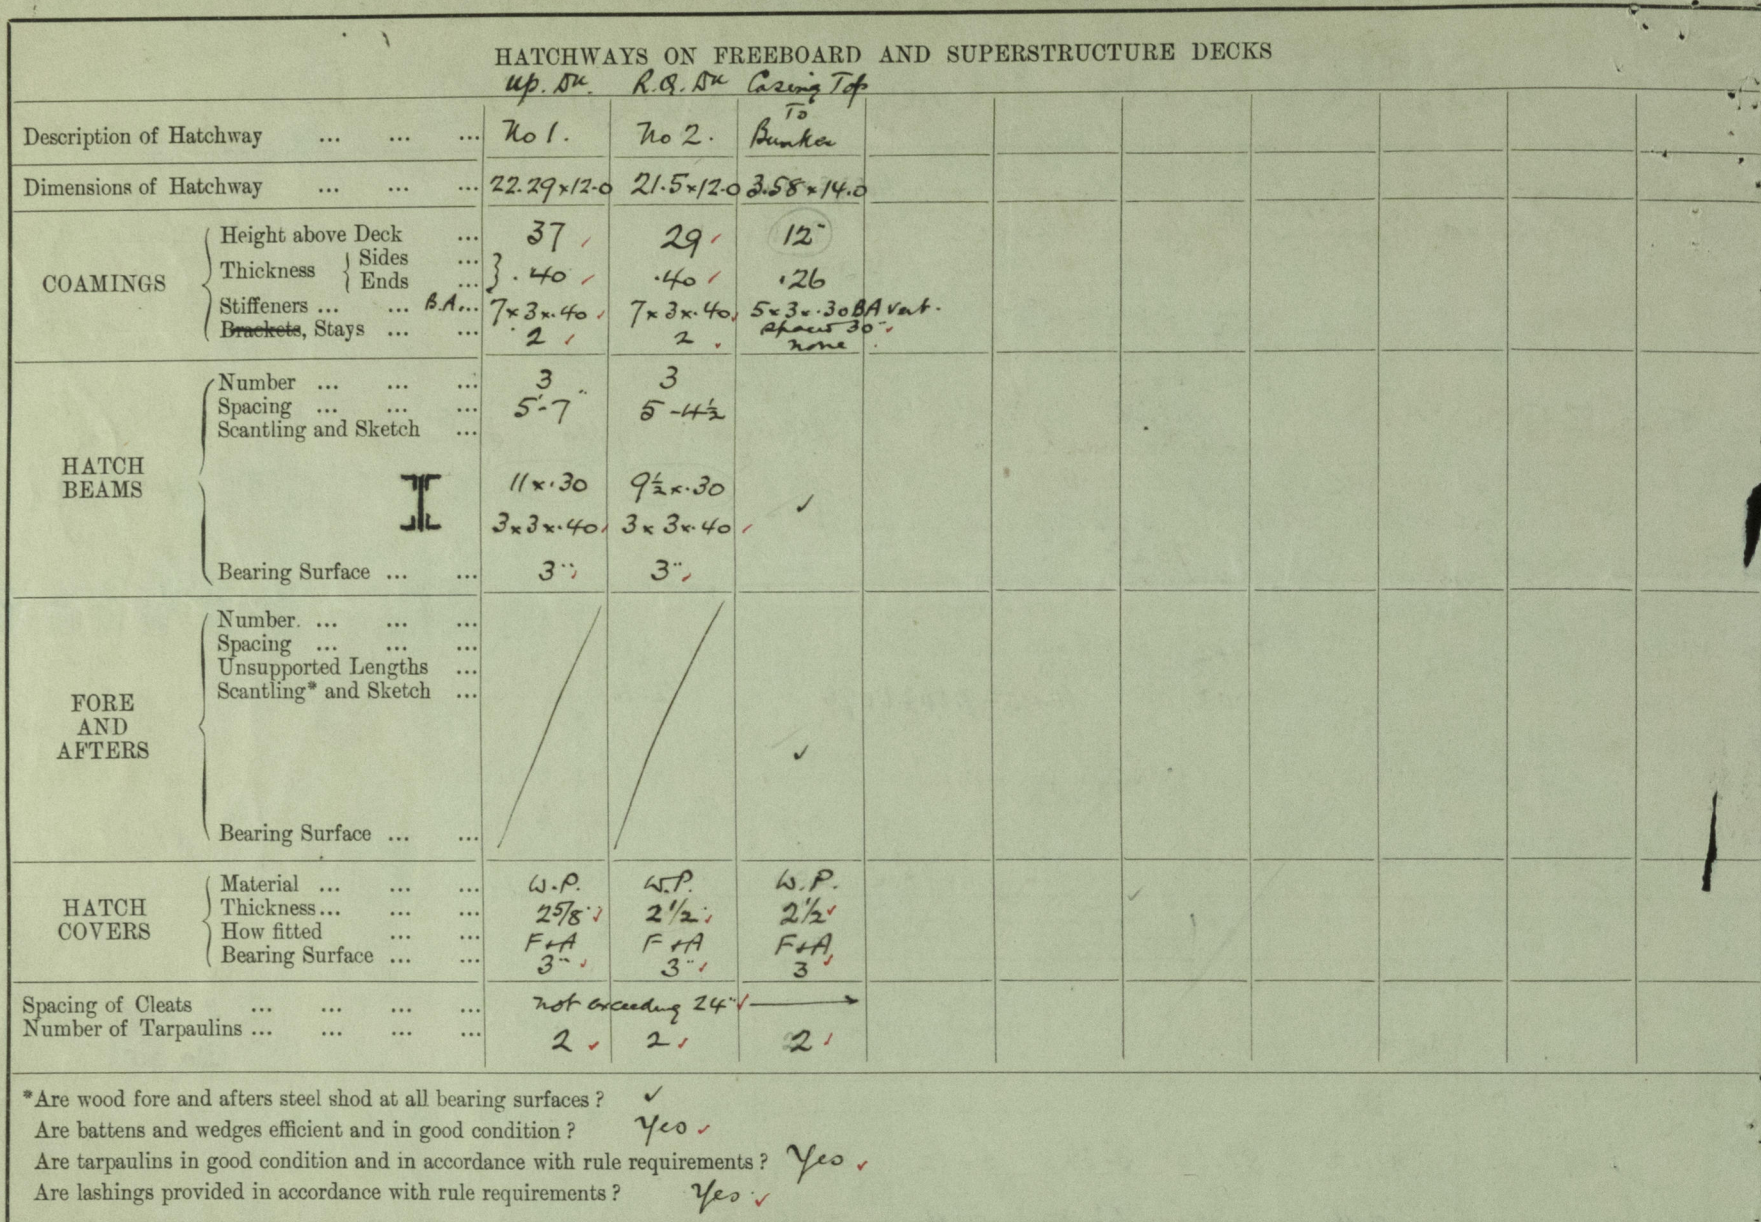 HATCHWAYS ON FREEBOARD AND SUPERSTRUCTURE DECKS
Up. Dk. R.Q. Dk Casing Top
To
Description of Hatchway ... ... ... No 1. No 2. Bunker
Dimensions of Hatchway ... ... ... 22.29×12.0 21.5×12.0 3.58×14.0
COAMINGS
Height above Deck ... 37 29 12"
Thickness { Sides ...
Ends ... } .40 .40 .26
Stiffeners ... ... B.A... 7×3×.40 7×3×.40 5×3×.30 BA vert.
spaced 30"
Brackets, Stays ... ... 2 2 none
HATCH BEAMS
Number ... ... ... 3 3
Spacing ... ... ... 5'-7" 5-4½
Scantling and Sketch ...
11×.30 9½×.30 ✓
3×3×.40 3×3×.40
Bearing Surface ... ... 3" 3"
FORE AND AFTERS
Number. ... ... ...
Spacing ... ... ...
Unsupported Lengths ...
Scantling* and Sketch ...
✓
Bearing Surface ... ...
HATCH COVERS
Material ... ... ... W.P. W.P. W.P.
Thickness... ... ... 2 5/8" 2 1/2" 2 1/2
How fitted ... ... F+A F+A F+A
Bearing Surface ... ... 3" 3" 3
Spacing of Cleats ... ... ... ... not exceeding 24"
Number of Tarpaulins ... ... ... ... 2 2 2
*Are wood fore and afters steel shod at all bearing surfaces? ✓
Are battens and wedges efficient and in good condition? Yes
Are tarpaulins in good condition and in accordance with rule requirements? Yes
Are lashings provided in accordance with rule requirements? Yes